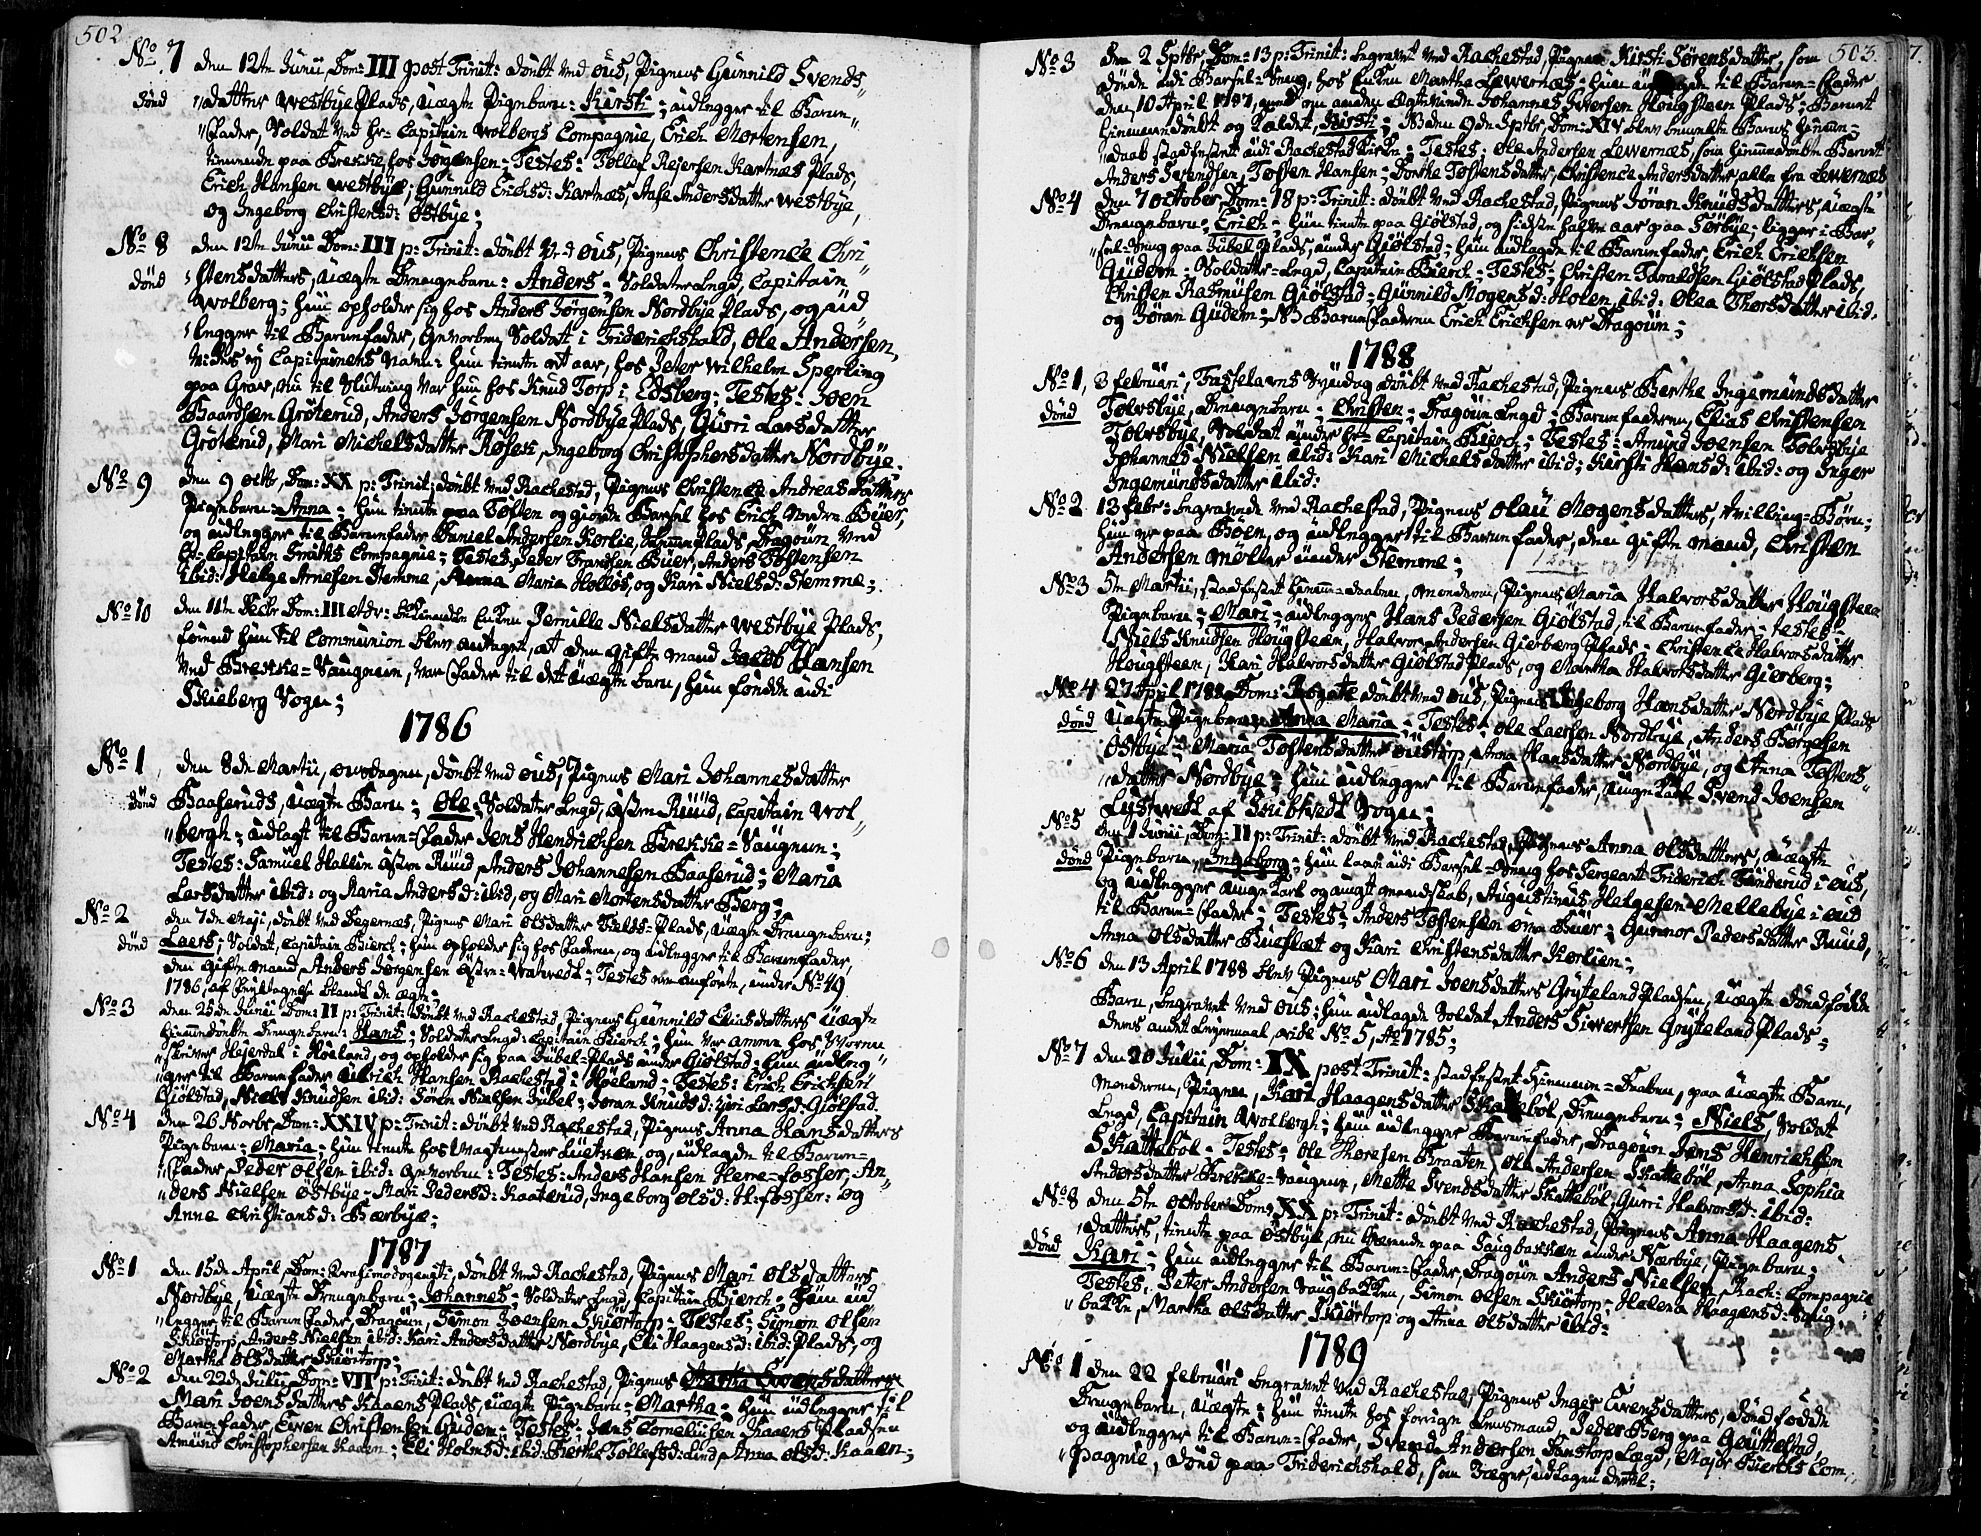 502
No 7 den 12te Junii, Dom: III post Trinit: døbt ved Øus, Pigens Gunnild Svends-
død datters Westbye Plads, uægte Pigebarn: Kiersti; udlegger til Barne-
Fader, Soldat ved Hr. Capitain Wolbergs Compagnie, Erich Mortensen,
tienende paa Brekke hos Jørgensen: Testes: Tollef Reiersen Kartnæs Plads,
Erich Hansen Westbye; Gunnild Erichsd: Kartnæs, Aase Andersdatter Westbye,
og Ingeborg Christensd: Østbye;
No 8 den 12te Junii Dom: III p: Trinit: døbt ved Øus, Pigens Christence Chri-
død stensdatters, uægte Drengebarn: Anders; Soldater Lægd, Capitain
Wolberg; hun opholder sig hos Anders Jørgensen Nordbye Plads, og ud-
legger til Barnefader, hverven Soldat i Friderichshald, Ole Andersen,
hun tiente et aar, hos Peter Wilhelm Sperling
paa Graar, nu til slutning var hun hos Knud Torp i Edsberg; Testes: Joen
Baardsen Grøterud, Anders Jørgensen Nordbye Plads, Guri Larsdatter
Grøterud, Mari Michelsdatter Røsek, Ingeborg Christophersdatter Nordbye.
No 9 den 9 octbr, Dom: XX p: Trinit: døbt ved Rachestad, Pigens Christence Andreasdatters
Pigebarn: Anna; hun tiente paa Tosten og giorde Barsel hos Erich Beier,
og udlegger til Barnefader Daniel Andersen Korlie, Plads, Dragoun ved
Hr. Capitain Smiths Compagnie; Testes, Peder Frandsen Buer, Anders Tostensen
ibid: Helge Arnesen Stemme, Anna Maria Holløs, og Kari Nielsd: Stemme;
No 10 den 11te Decbr Dom: III Adv: bekiendte Enken Pernille Nielsdatter Westbye Plads,
førend hun til Communion blev antaget, at den gifte mand Jacob Hansen
ved Brekke-Saugen, var Fader til det uægte barn, hun fødde udi
Skieberg Sogn;
1786
No 1, den 8de Martii, onsdagen, døbt ved Øus, Pigens Mari Johannesdatter
død Baaseruds, uægte Barn; Ole; Soldater Lægd, Østre Ruud, Capitain Wol-
bergh; udlagt til Barne-Fader Jens Hendrichsen Brekke-Saugen;
Testes: Samuel Hallin Østre Ruud, Anders Johannesen Baaserud; Maria
Larsdatter ibid: og Maria Andersd: ibid, og Mari Mortensdatter Berg;
No 2 den 7de Maji, døbt ved Degernæs, Pigens Mari Olsdatter Fields-Plads, uægte Drengebarn;
død Laers; Soldat, Capitain Bierch; hun opholder sig hos Faderen, og udlegger til Barnefader,
den gifte mand Anders Jørgensen Østre-Watvedt; Testes ere anførte, under No 49
1786, af blandt de ægte;
No 3 den 25de Junii Dom: II p: Trinit: døbt ved Rachestad, Pigens Gunnild Eliasdatters uægte
hiemmedøbte Drengebarn: Hans; Soldater Lægd: Capitain Bierch; hun var amme hos Soren-
skriver Hejerdal i Høland, og opholder sig paa Jubel-Plads under Giølstad; hun udleg-
ger til Barnefader Ulrich Hansen Rachestad i Høland; Testes: Erich Erichsen
Giølstad, Niels Knudsen ibid: Søren Nielsen Jubel; Jøran Knudsd: Guri Larsd: Giølstad.
No 4 den 26 Novbr Dom: XXIV p: Trinit: døbt ved Rachestad, Pigens Anna Hansdatters
Pigebarn; Maria; hun tiente hos Vagtmester Luetken, og udlagde til Barne-
Fader, Peder Olsen ibid: hverven: Testes: Anders Hansen Herre-fosser, An-
ders Nielsen Østbye, Mari Pedersd: Kaaterud, Ingeborg Olsd: H: fosser: og
Anne Christiansd: Bærbye;
1787
No 1 den 15de April, Dom: Qvasimodogeniti, døbt ved Rachestad, Pigens Mari Olsdatters
Nordbye, uægte Drengebarn; Johannes; Soldater Lægd, Capitain Bierch; hun ud-
legger til Barnefader, Dragoun, Simon Joensen Skiørtorp; Testes: Simon Olsen
Skiørtorp, Anders Nielsen ibid: Kari Andersdatter Nordbye, Eli Haagensd: ibid: Plads, og
Martha Olsdatter Skiørtorp;
No 2 den 22de Julii, Dom: VII p: Trinit: døbt ved Rachestad, Pigens Martha Evensdatters
Mari Joensdatters Kaaens Plads, uægte Pigebarn: Martha; hun udlegger til
Barnefader, Even Christensen Gudem; Testes: Jens Corneliusen Kaaens Pladsen
Amund Christophersen Kaaen; Eli Holmsd: ibid: Berthe Tollefsd: Lund, Anna Olsd: Kaaen;
503.
No 3 den 2 Sptbr, Dom: 13 p: Trinit: begravet ved Rachestad, Pigen Kirsti Sørensdatter, som
døde udi Barsel-Seng, hos Enken Martha Lewernæs; hun til Barne-Fader
den 10 April 1787, anden Johannes Iversen Hougsteen Plads; Barnet
hiemmedøbt og kaldet, Kirsti; NB den 9de Sptbr, Dom: XIV blev bemeldte Barns hiemme-
daab stadfæstet udi Rachestad Kirke; Testes: Ole Andersen Lewernæs, som hiemmedøbte Barnet
Anders Svendsen, Tosten Hansen; Dorthe Tostensdatter, Christence Andersdatter, alle fra Lewernæs
No 4 den 7 october, Dom: 18 p: Trinit: døbt ved Rachestad, Pigens Jøran Knudsdatters, uægte
Drengebarn: Erich; hun tiente paa Giølstad, og sidste halve aar paa Sørbye; ligger i Bar-
sel-Seng paa Jubel Plads, under Giølstad; hun udlagde til Barnefader, Erich Erichsen
Gudem: Soldater-Lægd, Capitain Bierch; Testes; Christen Taraldsen Giølstad Plads,
Christen Rasmusen Giølstad; Gunnild Mogensd: Holen, ibid: Olea Thorsdatter ibid:
og Jøran Gudem; NB Barnefaderen Erich Erichsen er Dragoun;
1788
No 1, 3 februari, Fastelavns Søndag døbt ved Rachestad, Pigens Berthe Ingemundsdatter
død Tolvsbye, Drengebarn: Christen; Dragoun Lægd; Barnefaderen, Elias Christensen
Tolvsbye, Soldat under Hr. Capitain Bierch; Testes: Amund Joensen Tolvsbye
Johannes Nielsen ibid: Kari Michelsdatter ibid; Kiersti Hansd: ibid: og Inger
Ingemundsdatter ibid:
No 2 13 febr: begravede ved Rachestad, Pigens Olau Mogensdatters, tvilling-Børn;
hun er paa Bøen, og udlegger til Barnefader, den gifte mand, Christen
Andersen møller under Stemme;
No 3 5te Martii, stadfæstet hiemme-daaben, Pigens Maria Halvorsdatter Hougsteen
Pigebarn; Mari; udlegger Hans Pedersen Giølstad, til Barnefader; Testes:
Niels Knudsen Hougsteen, Halvor Andersen Gierberg Plads; Christence Halvorsdatter
Hougsteen, Kari Halvorsdatter Giølstad Plads, og Martha Halvorsdatter Gierberg;
No 4 27 April 1788 Dom: Rogate døbt ved Øus, Pigens Ingeborg Hansdatter Nordbye Plads
død uægte Pigebarn Anna Maria; Testes: Ole Laersen Nordbye, Anders Børgesen
Østbye; Maria Tostensdatter Oustorp, Anna Hansdatter Nordbye, og Anna Tostens-
datter Nordbye; hun udlegger til Barnefader, Unge Karl Svend Joensen
Lystwedt af Skibtvedt Sogn;
No 5 den 1 Junii, Dom: II p: Trinit: døbt ved Rachestad, Pigens Anna Olsdatters, uægte
død Pigebarn, Ingeborg; hun laae udi Barsel-Seng hos Sergeant Friderich Tanderud i Øus,
og udlegger unge karl og ungt mandskab, Augustinus Helgesen Mellebye i Øus
til Barne-Fader; Testes: Anders Tostensen Buer; Gunnor Pedersdatter Ruud,
Anna Olsdatter Buerslæt og Kari Christensdatter Korlien;
No 6 den 13 April 1788 blev Pigens Mari Joensdatters Gryteland Pladsen, uægte dødfødde
Barn, begravet ved Øus; hun udlagde Soldat Anders Siwertsen Gryteland Plads;
deres andet Leyermaal, vide No 5, Ao 1785;
No 7 den 20 Julii, Dom: IX post Trinit: stadfæstet hiemme-Daaben, paa uægte Barn,
moderen, Pigen, Kari Haagensdatter Skattebøl, Drengebarn; Niels, Soldat
Lægd, Capitain Wolbergh; hun udlegger Barnefader, Dragoun Jens Henrichsen
Skattebøl; Testes; Ole Thoresen Braaten Ole Andersen Skattebøl, Anna Sophia
Andersdatter Brekke-Saugen, Mette Svendsdatter Skattebøl, Gurri Halvorsd: ibid:
No 8 den 5te October Dom: XX p: Trinit: døbt ved Rachestad, Pigens Anna Haagens-
datters, tiente paa Østbye, nu værende paa Saugbakken under Nærbye, Pigebarn;
død Kari; hun udlegger til Barne-Fader, Dragoun Anders Nielsen, Rach: Compagnie
Testes: Peter Andersen Saugbakken, Simon Olsen Skiørtorp; Helena Haagensd: Saug-
bakken, Martha Olsdatter Skiørtorp og Anna Olsdatter ibid:
1789
No 1 den 22 februari begravet ved Rachestad, Pigens Inger Evensdatters, dødfødde
Drengebarn, uægte; hun tiente hos forrige Lensmand Peder Berg paa Gouttestad,
og udlegger til Barne-Fader, Svend Andersen Danstorp Lægd, Major Bierchs Com-
pagnie, død paa Friderichshald, som Jæger, udlagen dertil;